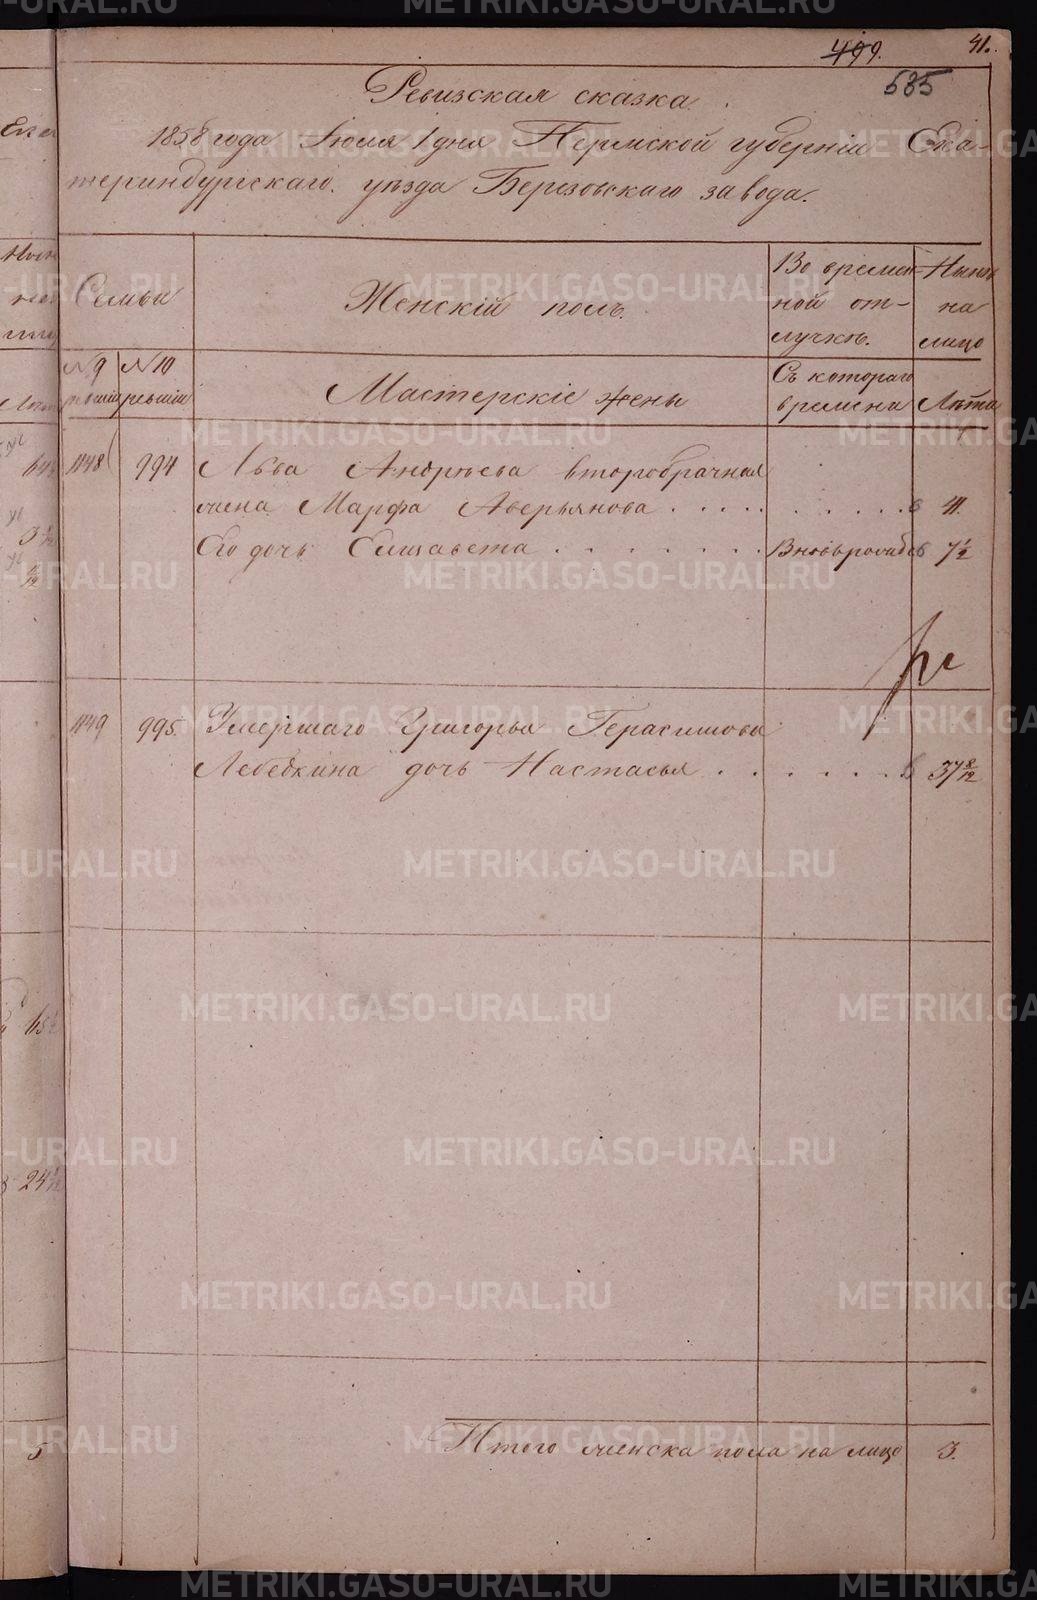 499.
41.
535
Ревизская сказка.
1858 года Іюля 1 дня Пермской губерніи Ека-
теринбургскаго уѣзда Березовскаго завода.
Семьи
Женскій полъ.
Во времен-
ной от-
лучкѣ.
Нынѣ
на
лицо
№ 9 ревизіи
№ 10 ревизіи
Мастерскіе жены
Съ котораго
времени
Лѣта
1148 994 Льва Андреева второбрачная
жена Марфа Аверьянова . . . . . . . . . . 41.
Его дочь Елисавета . . . . . . . . Вновьрожд 7 1/2
1149 995. Умершаго Григорья Герасимова
Лебедкина дочь Настасья . . . . . . . 37 8/12
Итого женска пола на лицо 3.
METRIKI.GASO-URAL.RU